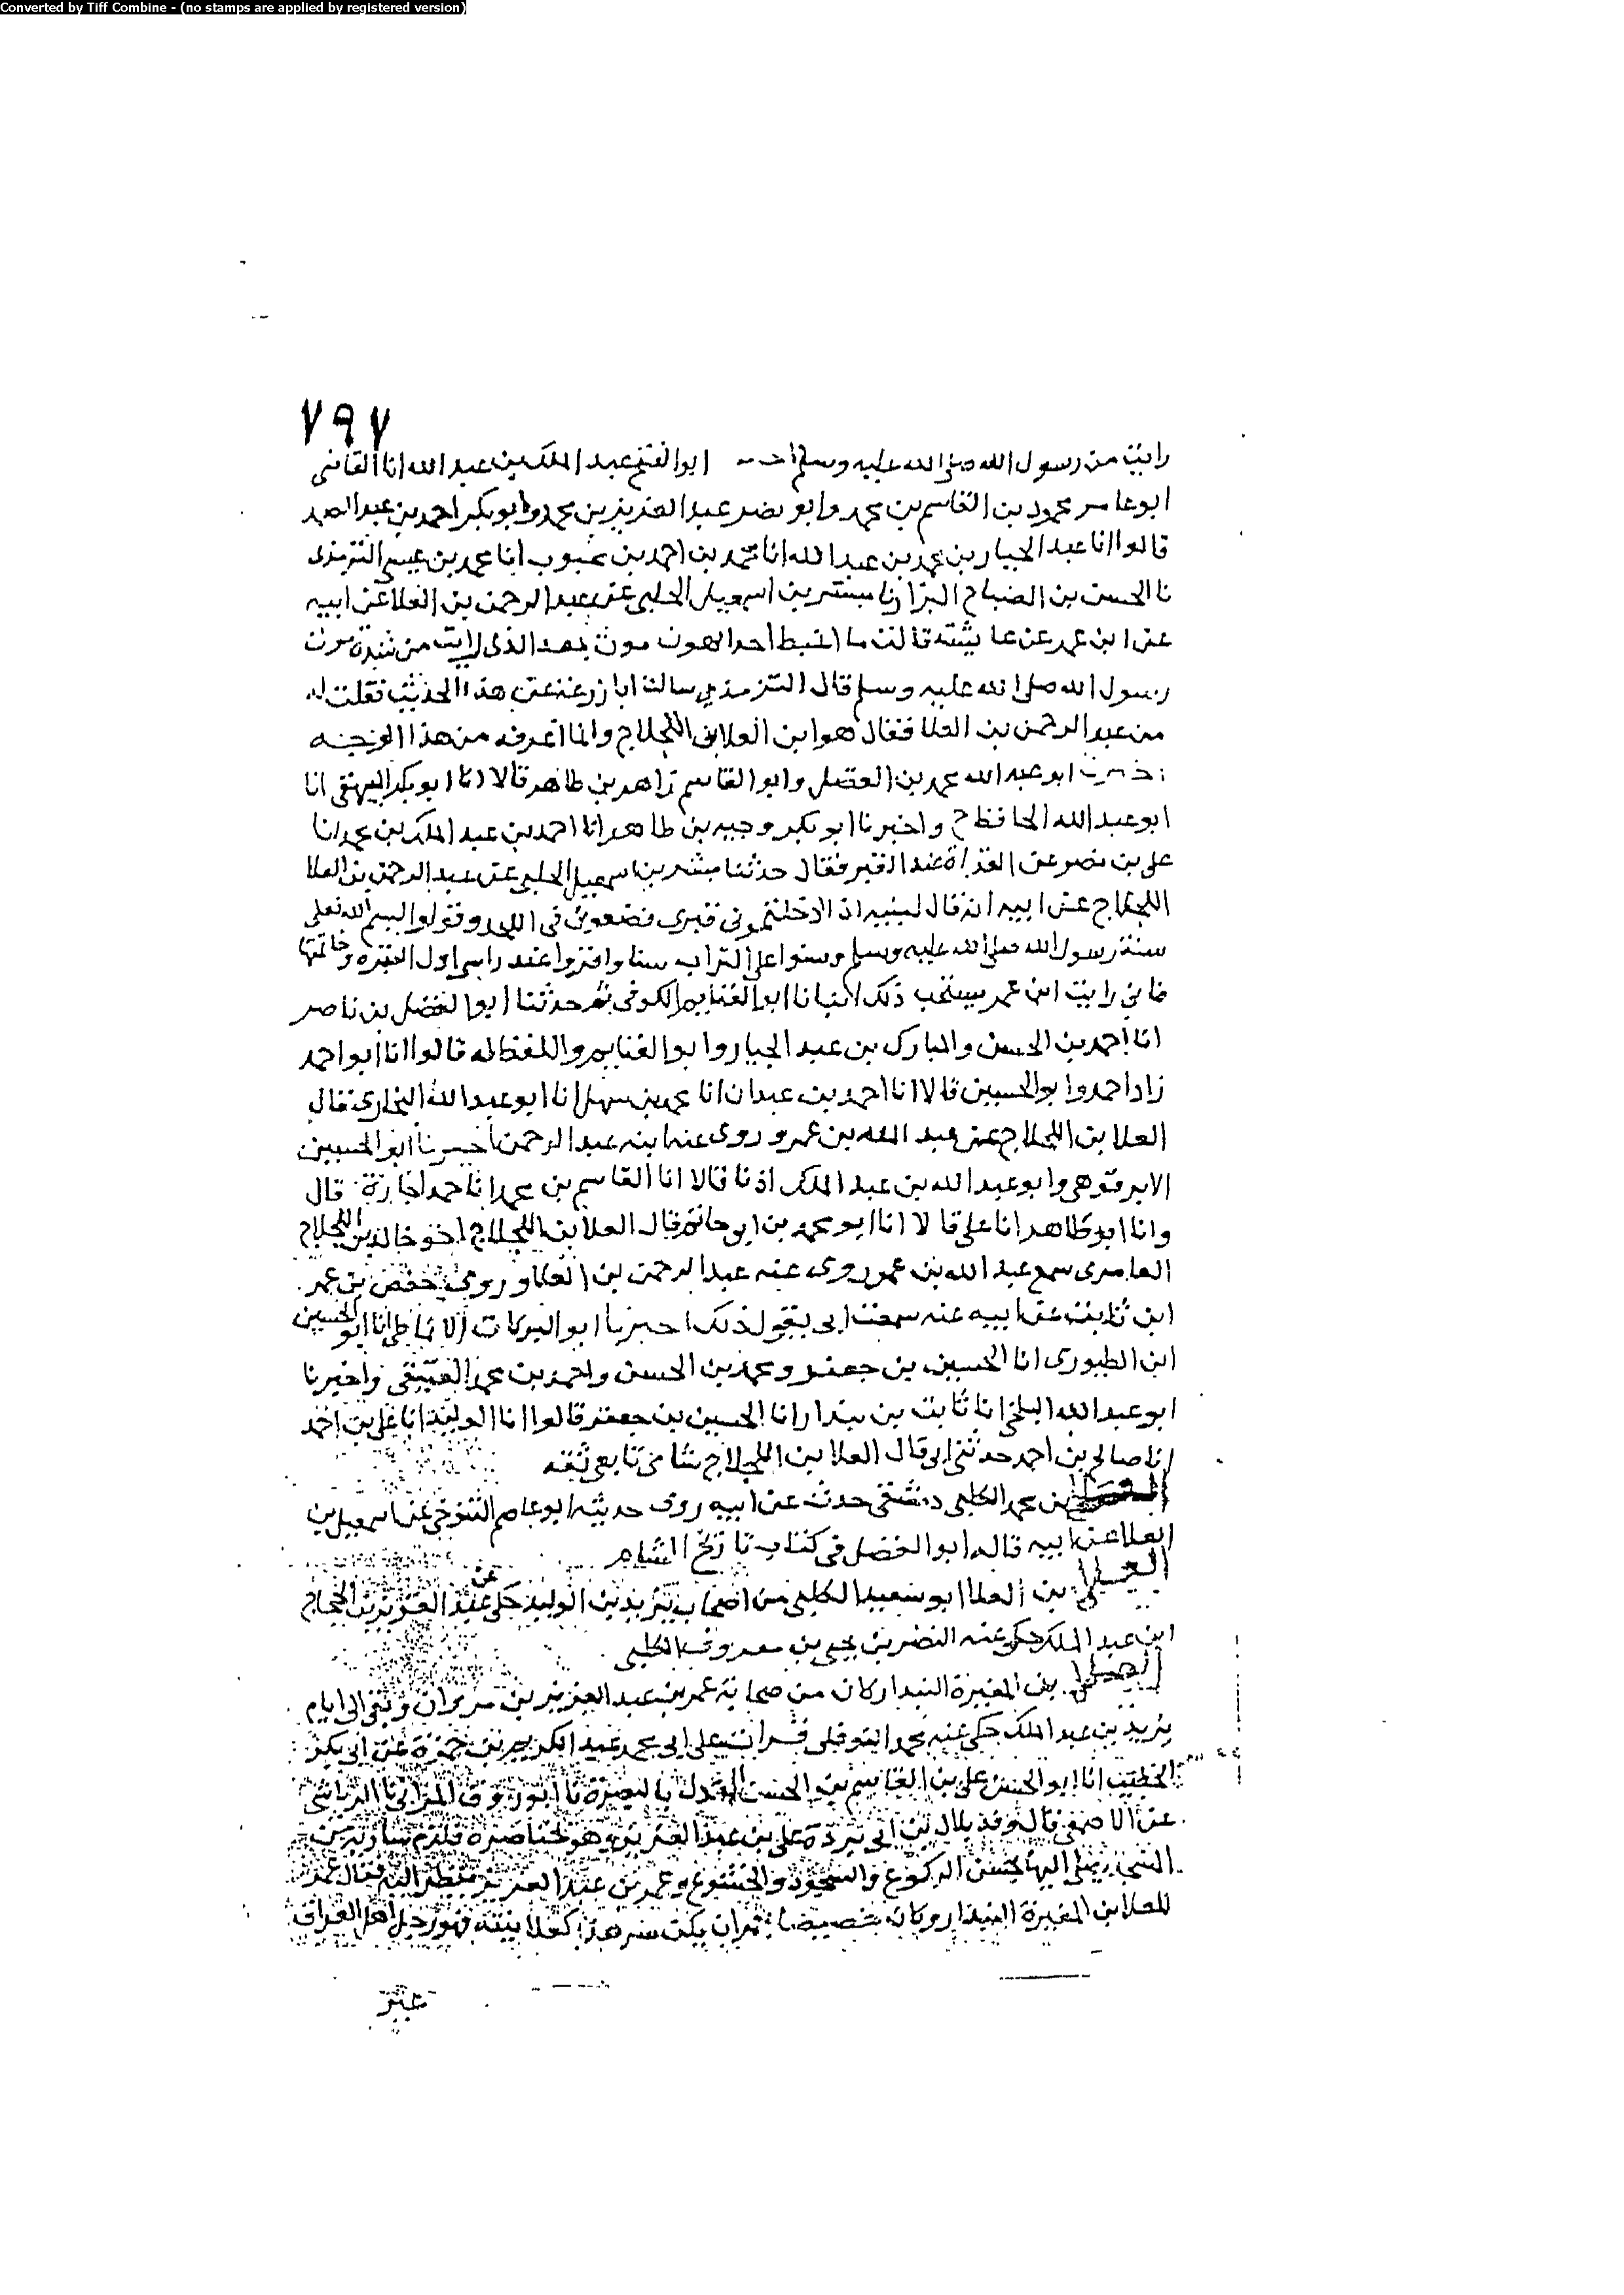 Converted by Tiff Combine - (no stamps are applied by registered version)
٧٩٧
رايت من رسول الله صلى الله عليه وسلم ابو الفتح عبد الملك بن عبد الله انا القاضى
ابو عامر محمود بن القاسم بن محمد وابو نصر عبد العزيز بن محمد وابو بكر احمد بن عبد الصمد
قالوا انا عبد الجبار بن محمد بن عبد الله انا محمد بن احمد بن محبوب انا محمد بن عيسى الترمذى
نا الحسن بن الصباح البزار نا مبشر بن اسمعيل الحلبى عن عبد الرحمن بن العلا عن ابيه
عن ابن عمر عن عايشه قالت ما اغبط احدا بهون موت بعد الذى رايت من شدة موت
رسول الله صلى الله عليه وسلم قال الترمذي سالت ابا زرعة عن هذا الحديث فقلت له
من عبد الرحمن بن العلا فقال هو ابن العلا بن اللجلاج وانما اعرفه من هذا الوجه
ابو عبد الله محمد بن الفضل وابو القاسم زاهر بن طاهر قالا انا ابو بكر البيهقى انا
ابو عبد الله الحافظ ح واخبرنا ابو بكر وجيه بن طاهر انا احمد بن عبد الملك بن محمد انا
على بن نصر عن القراة عند القبر فقال حدثنا مبشر بن اسمعيل الحلبى عن عبد الرحمن بن العلا
اللجلاج عن ابيه انه قال لبنيه اذا ادخلتمونى قبرى فضعونى فى اللحد وقولوا بسم الله وعلى
سنة رسول الله صلى الله عليه وسلم وسنوا على التراب سنا واقروا عند راسى اول البقرة وخاتمتها
فانى رايت ابن عمر يستحب ذلك انبانا ابو الغنايم الكوفى ثم حدثنا ابو الفضل بن ناصر
انا احمد بن الحسن والمبارك بن عبد الجبار وابو الغنايم واللفظ له قالوا انا ابو احمد
زاد احمد وابو الحسين قالا انا احمد بن عبدان انا محمد بن سهل انا ابو عبد الله البخارى قال
العلا بن اللجلاج عن عبد الله بن عمر وروى عنه ابنه عبد الرحمن اخبرنا ابو الحسين
الابرقوهى وابو عبد الله بن عبد الملك اذنا قالا انا القاسم بن محمد انا حمد اجازة قال
وانا ابو طاهر انا على قالا انا ابو محمد بن ابى حاتم قال العلا بن اللجلاج اخو خالد بن اللجلاج
العامرى سمع عبد الله بن عمر روى عنه عبد الرحمن بن العلا وروى حفص بن عمر
ابن ثابت عن ابيه عنه سمعت ابى يقول ذلك اخبرنا ابو البركات الانماطى انا ابو الحسين
ابن الطيورى انا الحسين بن جعفر ومحمد بن الحسن واحمد بن محمد العتيقى واخبرنا
ابو عبد الله البلخى انا ثابت بن بندار انا الحسين بن جعفر قالوا انا الوليد انا على بن احمد
انا صالح بن احمد حدثنى ابى قال العلا بن اللجلاج شامى تابعى ثقه
بن محمد الكلبى دمشقى حدث عن ابيه روى حديثه ابو عاصم التنوخى عن اسمعيل بن
العلا عن ابيه قاله ابو الفضل فى كتاب تاريخ الشام
العلا بن العلا ابو سعيد الكلبى من اصحاب يزيد بن الوليد حكى عن عبد العزيز بن الحجاج
ابن عبد الملك حكى عنه النضر بن يحيى بن معروف الكلبى
العلا بن المغيرة البندار كان من صحابة عمر بن عبد العزيز بن مروان وبقى الى ايام
يزيد بن عبد الملك حكى عنه محمد النوفلى قرات على ابى محمد عبد الكريم بن حمزة عن ابى بكر
الخطيب انا ابو الحسن على بن القاسم بن الحسن العدل بالبصرة نا ابو روق الهزانى نا الرياشى
عن الاصمعى قال وفد بلال بن ابى بردة على بن عبد العزيز وهو بخناصرة فلزم سارية من
المسجد يصلى اليها يحسن الركوع والسجود والخشوع وعمر بن عبد العزيز ينظر اليه فقال عمر
للعلا بن المغيرة البندار وكان خصيصا به ان يكن سر هذا كعلانيته فهو رجل اهل العراق
غير